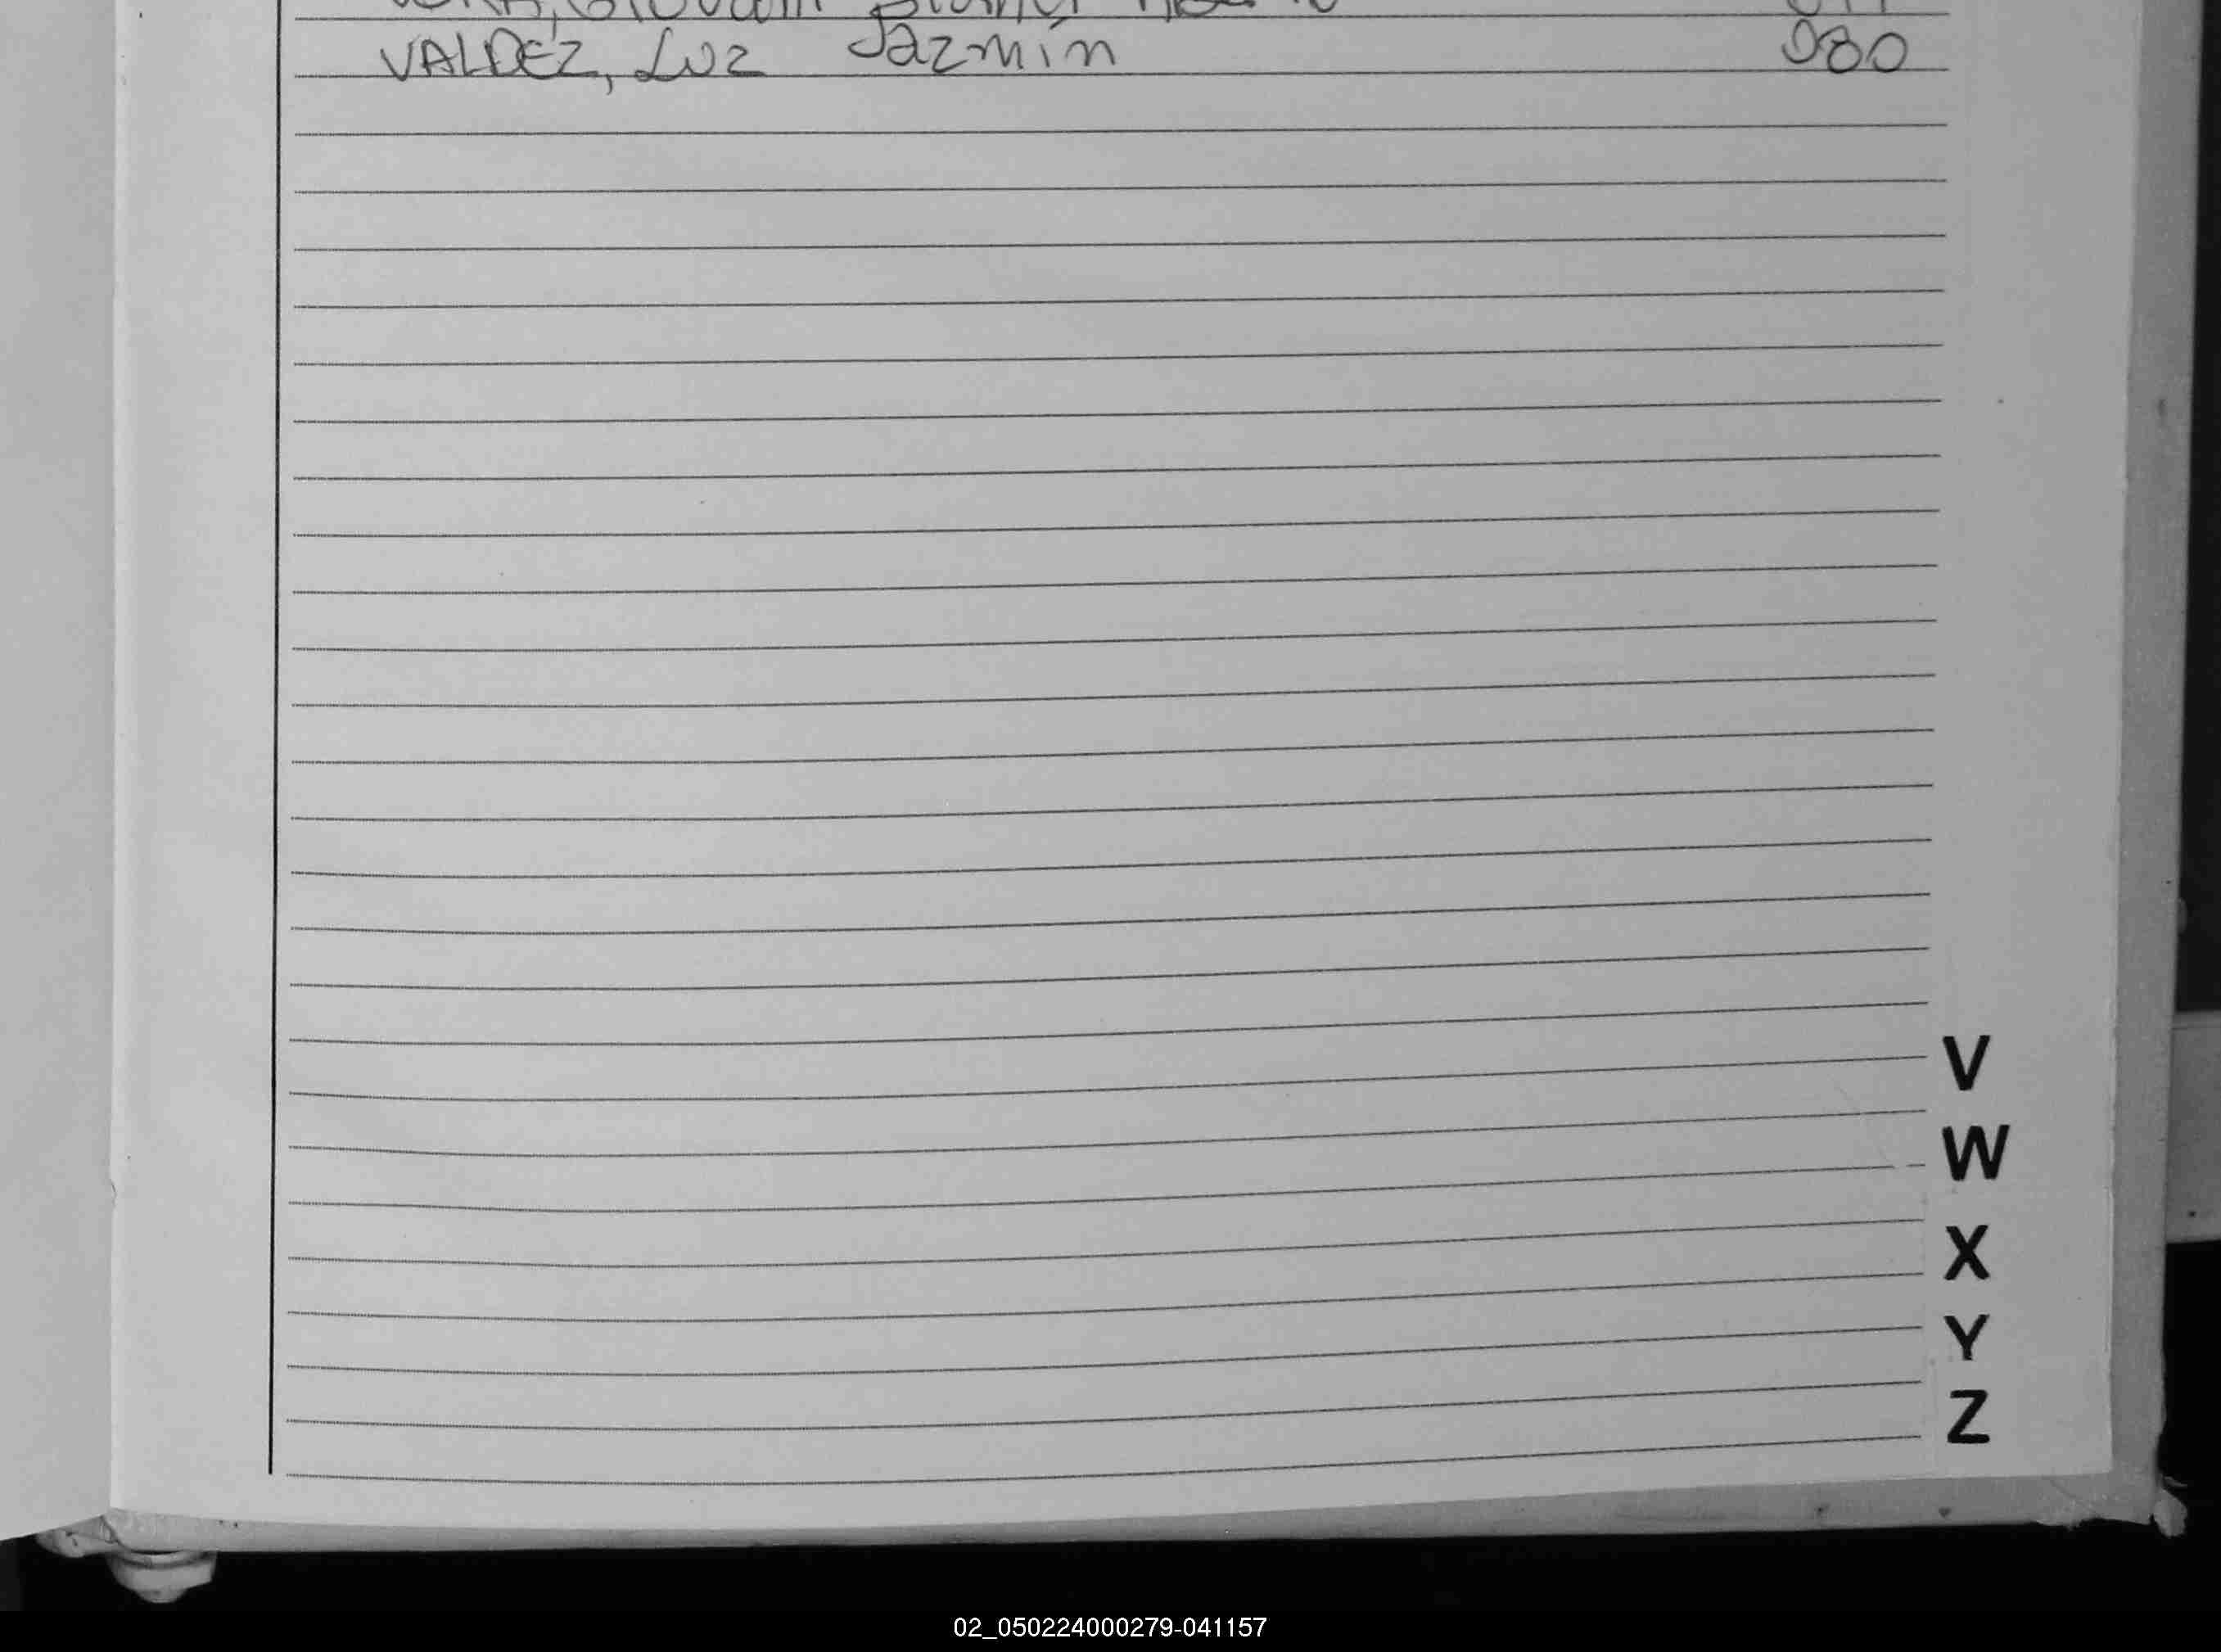 VALDÉZ, Luz Jazmín 080
V
W
X
Y
Z
02_050224000279-041157